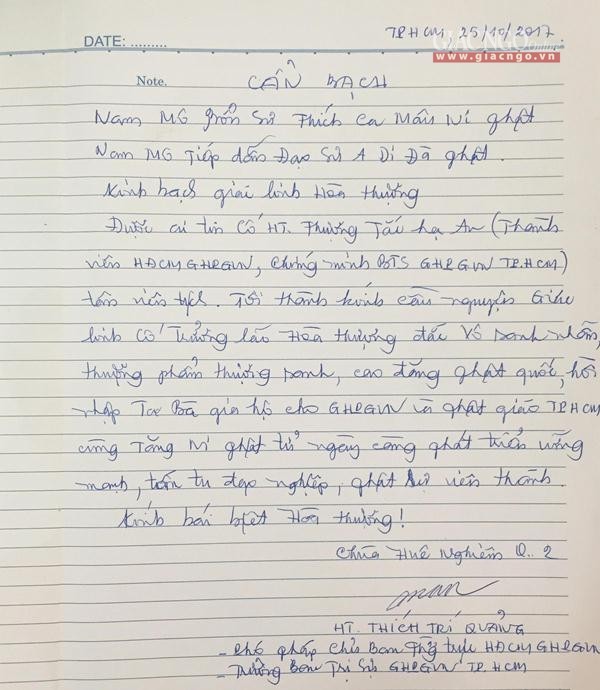 TP.HCM 25/10/2017
DATE: .........
GIACNGO
www.giacngo.vn
Note. CẨN BẠCH
Nam Mô Bổn Sư Thích Ca Mâu Ni Phật
Nam Mô Tiếp dẫn Đạo Sư A Di Đà Phật.
Kính bạch giác linh Hòa thượng
Được cử tin Cố HT. Thượng Tắc hạ An (Thành
viên HĐCM GHPGVN, chứng minh BTS GHPGVN TP.HCM)
tân viên tịch. Tôi thành kính cầu nguyện Giác
linh Cố Trưởng lão Hòa thượng đắc Vô sanh nhẫn,
thượng phẩm thượng sanh, cao đăng Phật quốc, hồi
nhập Ta Bà gia hộ cho GHPGVN và Phật giáo TP.HCM
cùng Tăng Ni Phật tử ngày càng phát triển vững
mạnh, tấn tu đạo nghiệp, Phật sự viên thành.
Kính bái biệt Hòa thượng!
Chùa Huê Nghiêm Q. 2
HT. THÍCH TRÍ QUẢNG
- Phó Pháp Chủ Ban Thg trực HĐCM GHPGVN
- Trưởng Ban Trị Sự GHPGVN TP.HCM